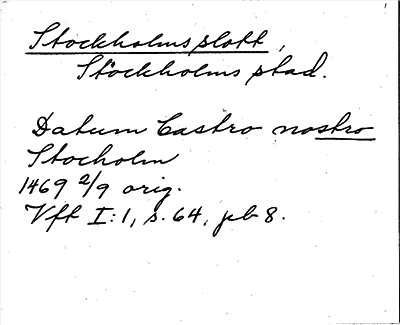 Stockholms slott,
Stockholms stad.
Datum Castro nostro
Stocholm
1469 2/9 orig.
Vft I:1, s. 64, jb 8.